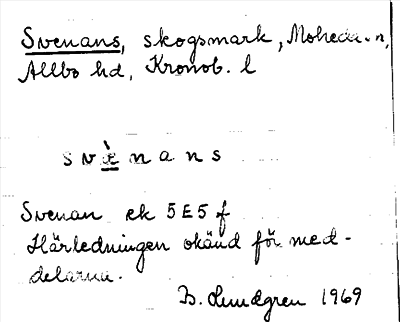 Svenans, skogsmark, Moheda sn,
Allbo hd, Kronob. l
s v æ̀ n a n s
Svenan ek 5E5 f
Härledningen okänd för med-
delarna.
B. Lundgren 1969